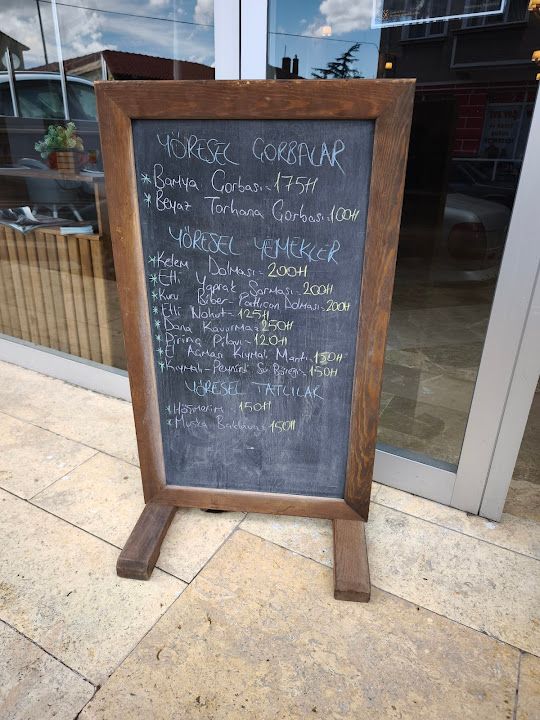 YÖRESEL ÇORBALAR
* Bamya Çorbası: 175tl
* Beyaz Tarhana Çorbası: 100tl
YÖRESEL YEMEKLER
* Kelem Dolması - 200tl
* Etli Yaprak Sarması: 200tl
* Kuru Biber - Patlıcan Dolması: 200tl
* Etli Nohut - 125tl
* Dana Kavurma: 250tl
* Pirinç Pilavı - 120tl
* El Açması Kıymalı Mantı: 150tl
* Kıymalı - Peynirli Su Böreği: 150tl
YÖRESEL TATLILAR
* Höşmerim 150tl
* Muska Baklavası: 150tl